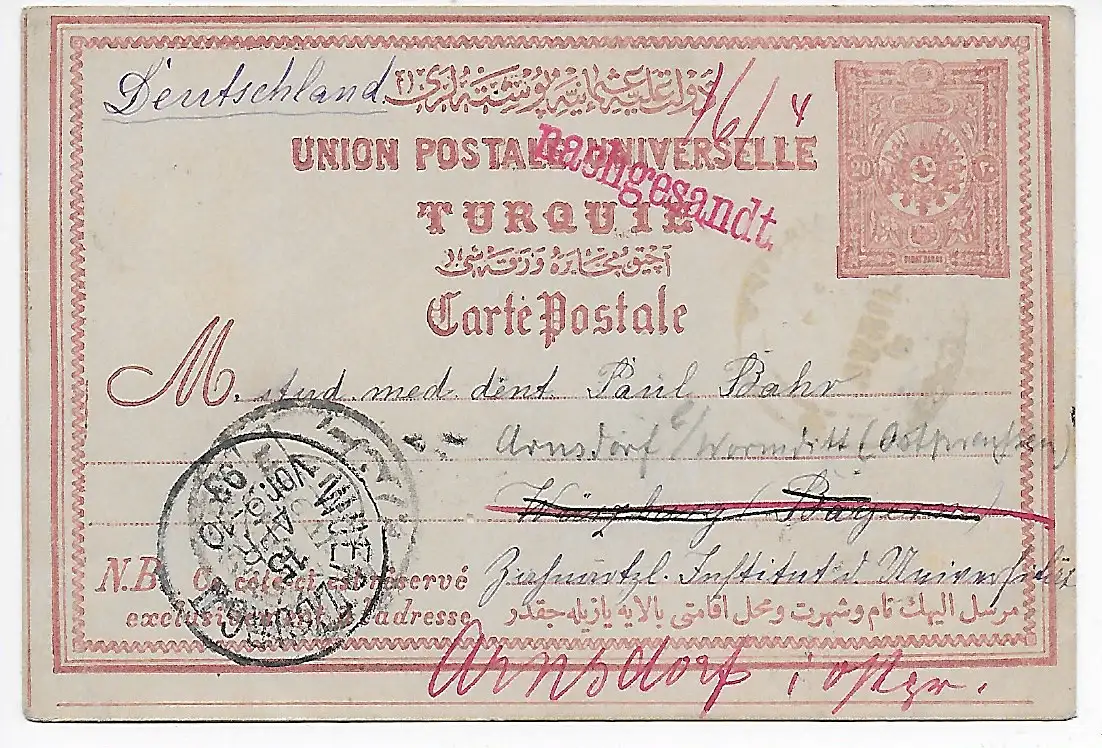 Deutschland
دولت عليه عثمانيه پوسته لرى
UNION POSTALE UNIVERSELLE
nachgesandt.
TURQUIE
آچيق مخابره ورقه سى
20 ٢٠
Carte Postale
M. stud med. dent. Paul Bahr
Arnsdorf b/ Wormditt (Ostpreußen)
Würzburg (Bayern)
Zahnärztl. Institut d Universität
N.B. Ce côté-ci est réservé
exclusivement à l'adresse
مرسل اليهك نام وشهرت ومحل اقامتى بالايه يازيله جقدر
Arnsdorf i ostpr.